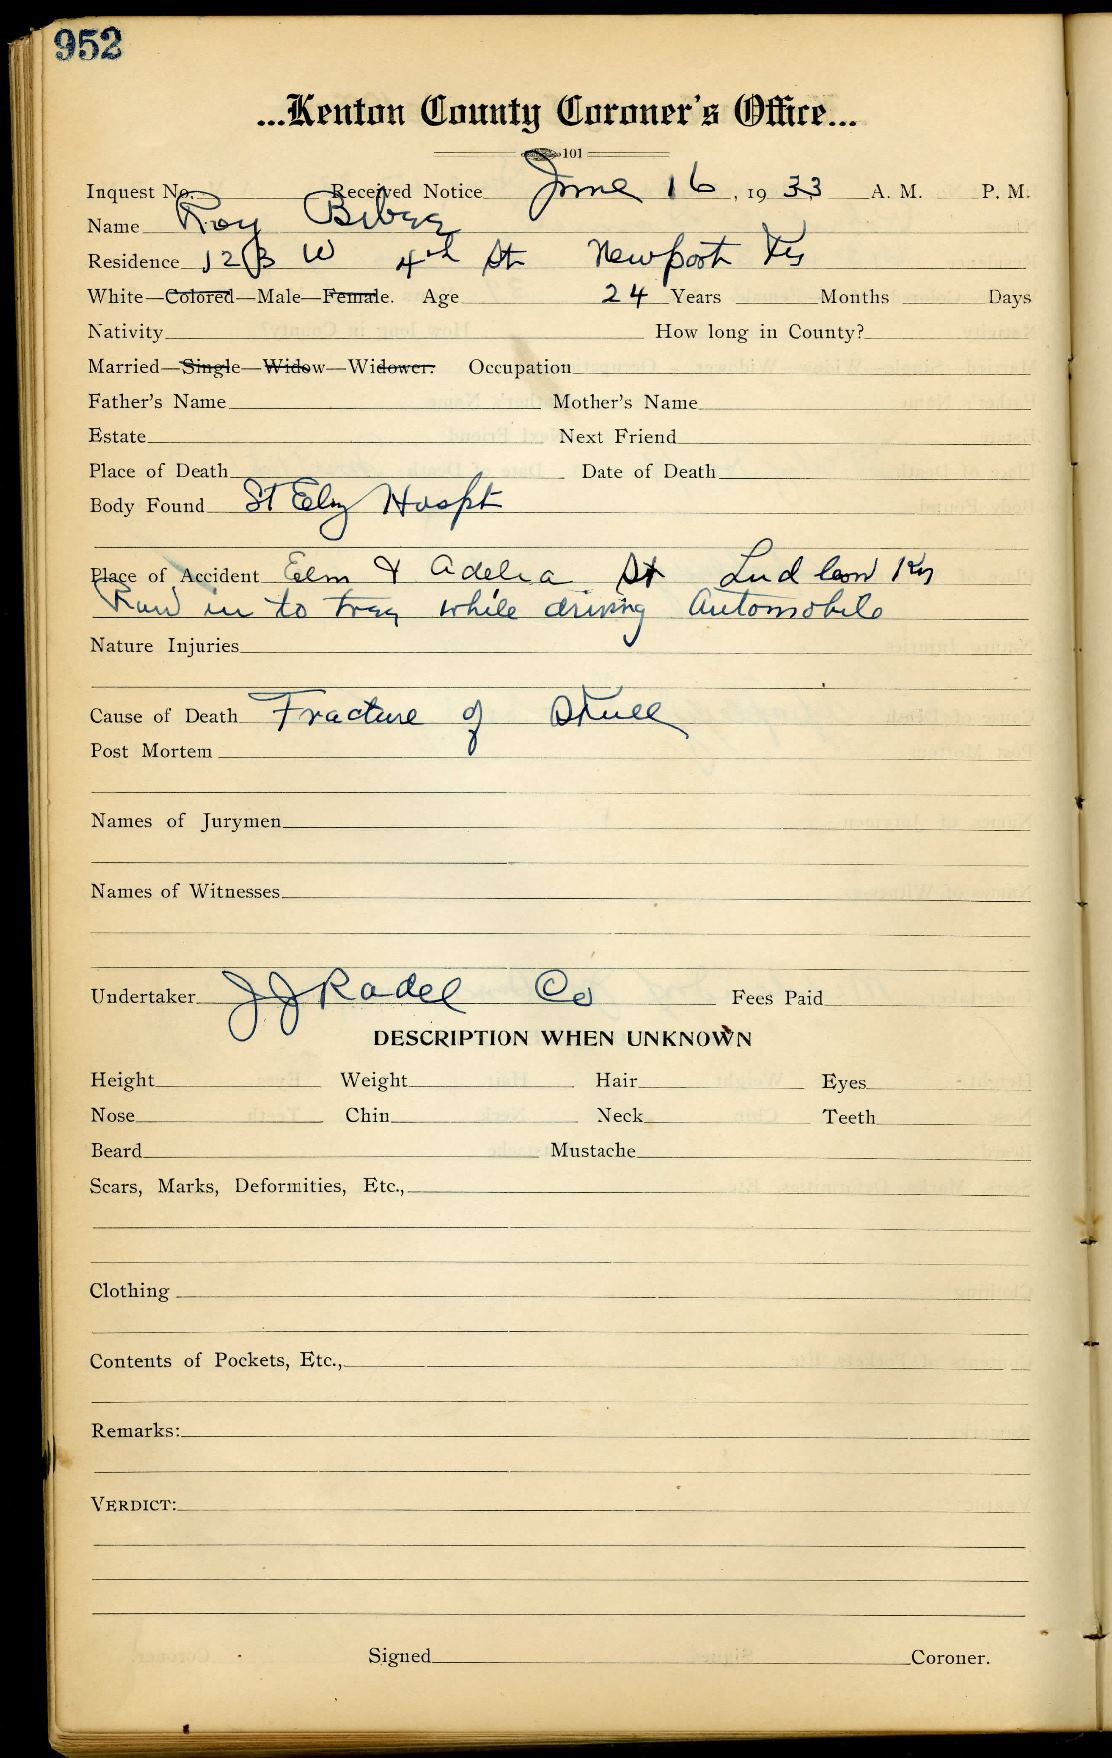 952
...Kenton County Coroner's Office...
101
Inquest No. Received Notice June 16, 1933 A. M. P. M.
Name Roy
Residence W 4th St Newport Ky
White—Colored—Male—Female. Age 24 Years Months Days
Nativity How long in County?
Married—Single—Widow—Widower. Occupation
Father's Name Mother's Name
Estate Next Friend
Place of Death Date of Death
Body Found St Eliz Hospt
Place of Accident Elm & Adelia St Ludlow Ky
Ran in to while driving Automobile
Nature Injuries
Cause of Death Fracture of Skull
Post Mortem
Names of Jurymen
Names of Witnesses
Undertaker J J Radel Co Fees Paid
DESCRIPTION WHEN UNKNOWN
Height Weight Hair Eyes
Nose Chin Neck Teeth
Beard Mustache
Scars, Marks, Deformities, Etc.,
Clothing
Contents of Pockets, Etc.,
Remarks:
VERDICT:
Signed Coroner.